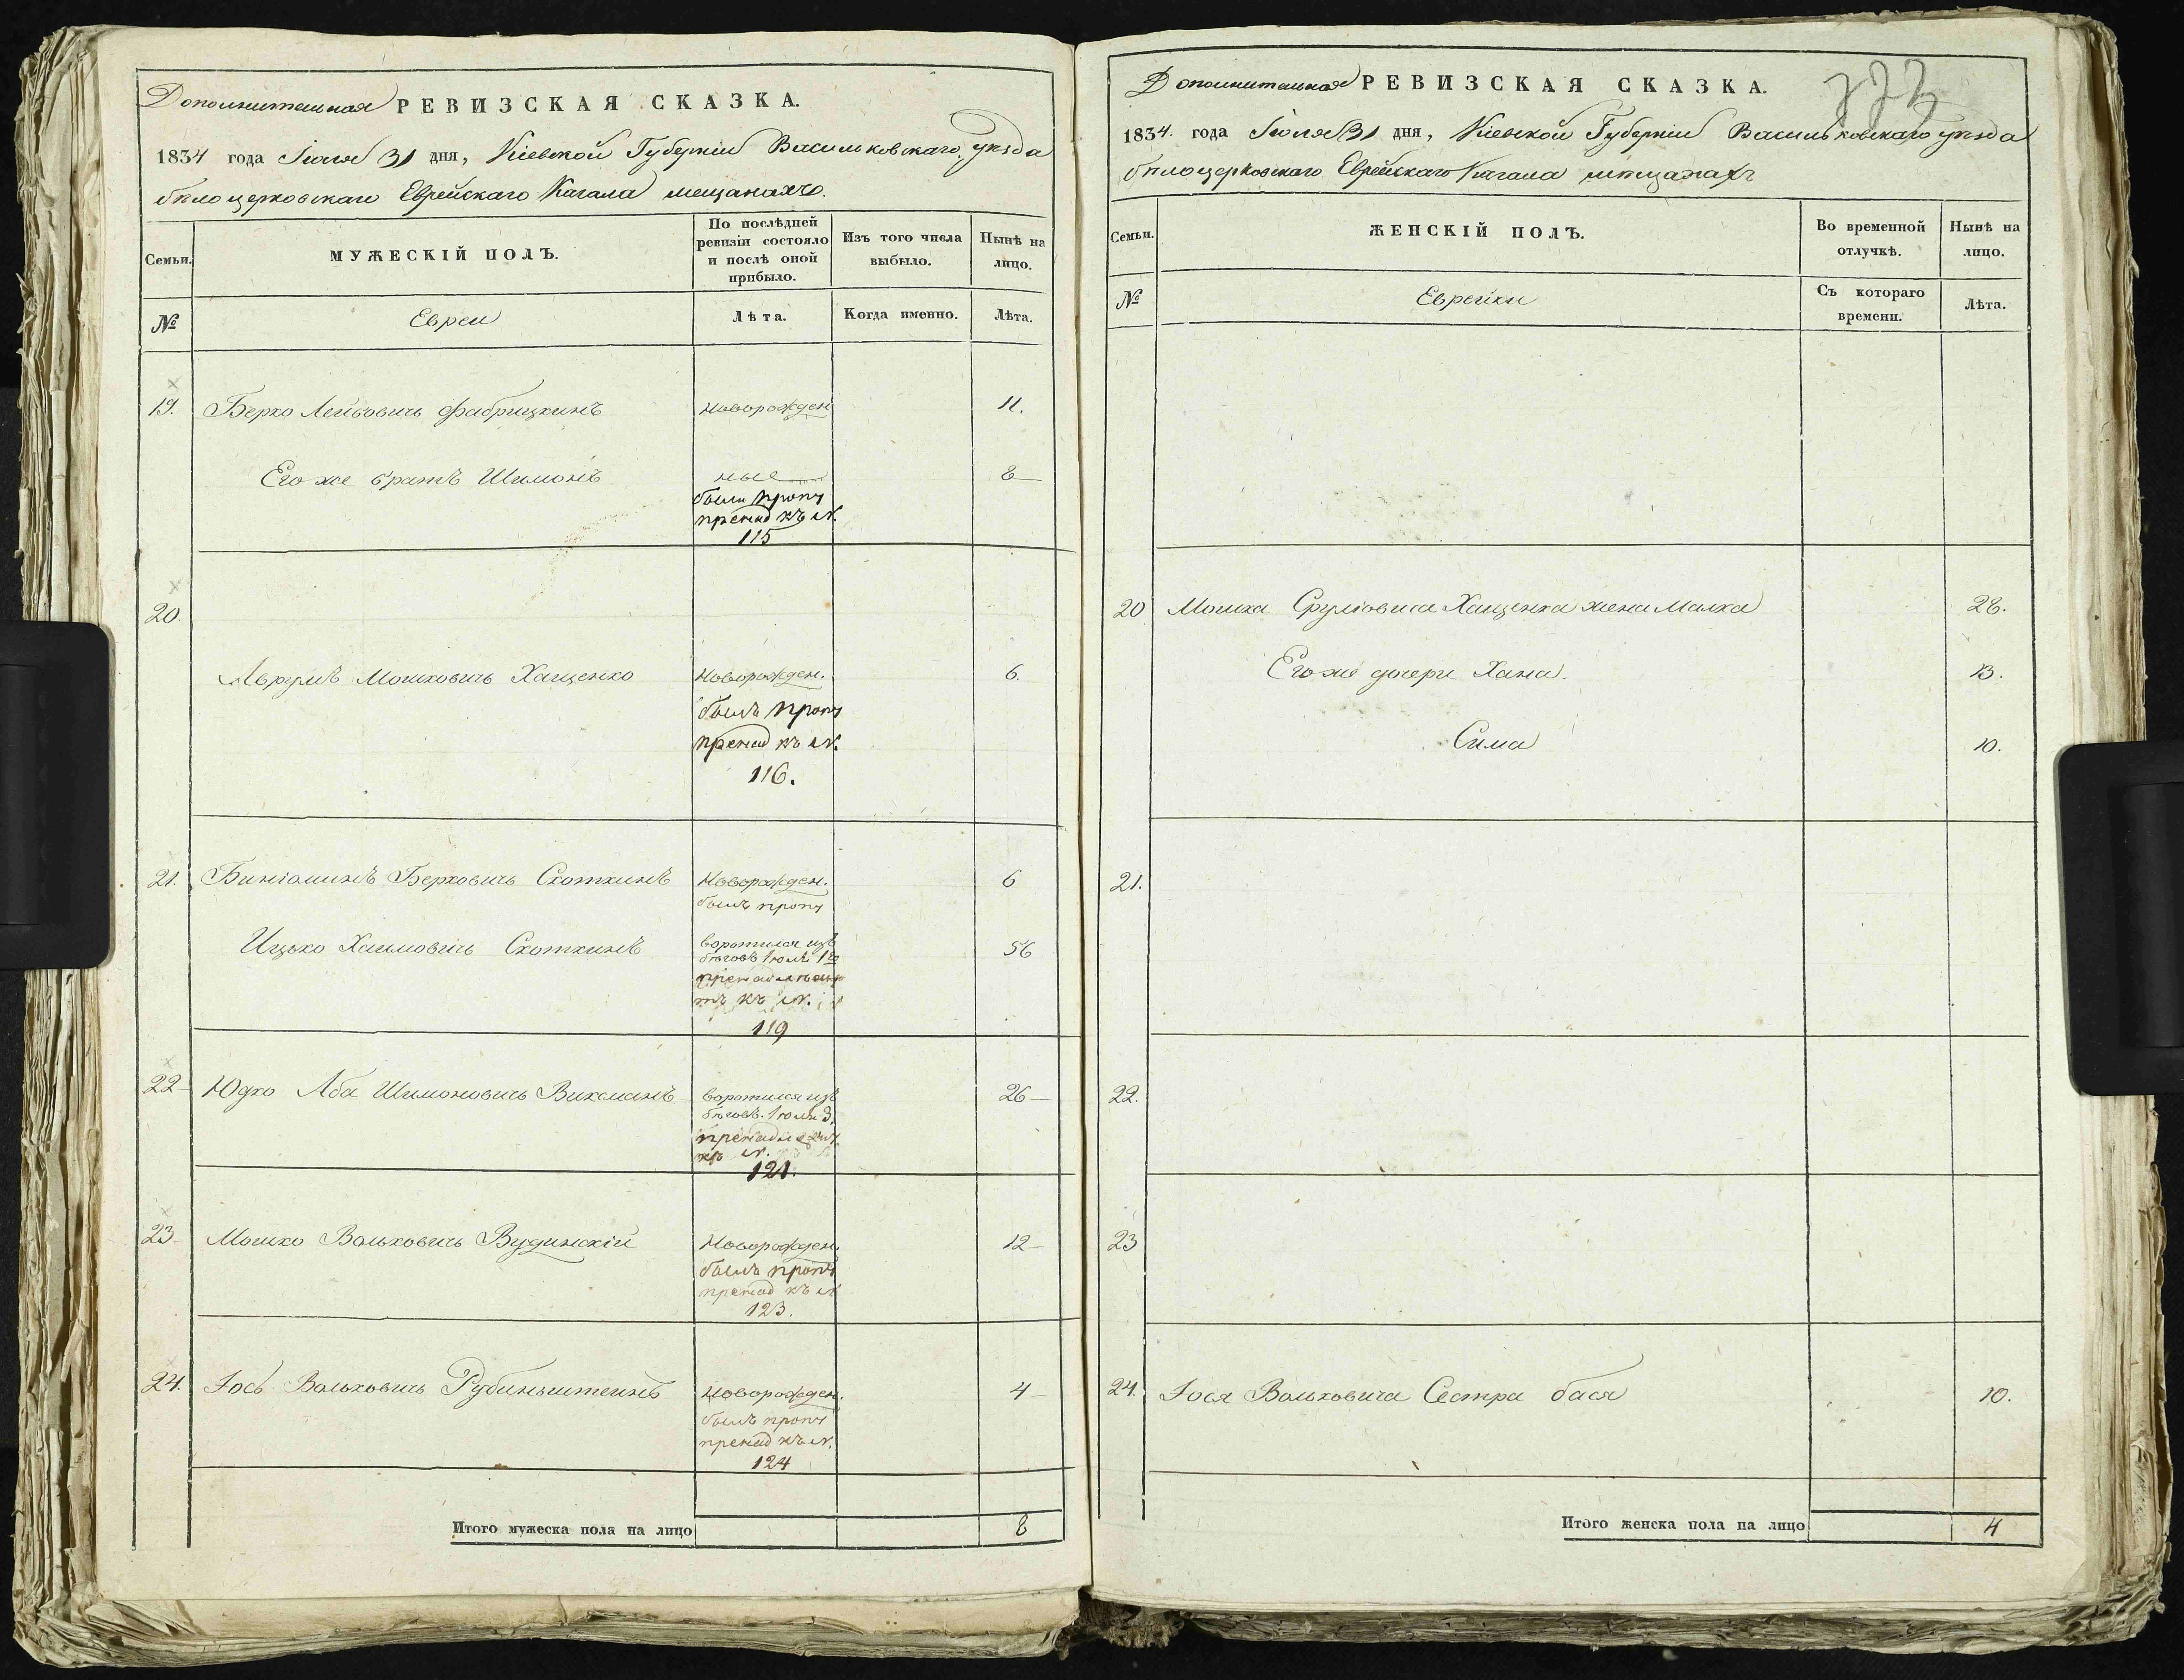 Дополнительная РЕВИЗСКАЯ СКАЗКА.
1834 года Іюля 31 дня, Кіевской Губерніи Васильковскаго уѣзда
бѣлоцерковскаго Еврейскаго Кагала мещанахъ.
Семьи.
МУЖЕСКІЙ ПОЛЪ.
По послѣдней
ревизіи состояло
и послѣ оной
прибыло.
Изъ того числа
выбыло.
Нынѣ на
лицо.
№
Евреи
Лѣта.
Когда именно.
Лѣта.
19. Берко Лейбовичъ Фабрицкинъ новорожден 11.
Его же братъ Шимонъ ные 8
были проп
пренад къ №.
115
20.
Аврумъ Мошковичъ Хащенко Новорожден. 6.
былъ проп
пренад къ №.
116.
21. Биніоминъ Берковичъ Скоткинъ Новорожден. 6
былъ проп
Ицько Хаимовичъ Скоткинъ воротился изъ 56
бѣговъ Іюля 1го
къ №.
119
22 Юдко Аба Шимоновичъ Виксманъ воротился изъ 26
бѣговъ. Іюля 3.
къ №.
121.
23 Мошко Вольковичъ Вудинскій Новорожден. 12
былъ проп
пренад къ №
123.
24. Іось Вольковичъ Рубинштеинъ Новорожден. 4
былъ проп
пренад къ №.
124
Итого мужеска пола на лицо 8
Дополнительная РЕВИЗСКАЯ СКАЗКА.
1834. года Іюля 31 дня, Кіевской Губерніи Васильковскаго уѣзда
бѣлоцерковскаго Еврейскаго Кагала мѣщанахъ
Семьи.
ЖЕНСКІЙ ПОЛЪ.
Во временной
отлучкѣ.
Нынѣ на
лицо.
№
Еврейки
Съ котораго
времени.
Лѣта.
20 Мошка Сруліовича Хащенка жена Малка 28.
Его же дочери Хана. 13.
Сима 10.
21.
22.
23
24. Іося Вольковича Сестра бася 10.
Итого женска пола на лицо 4